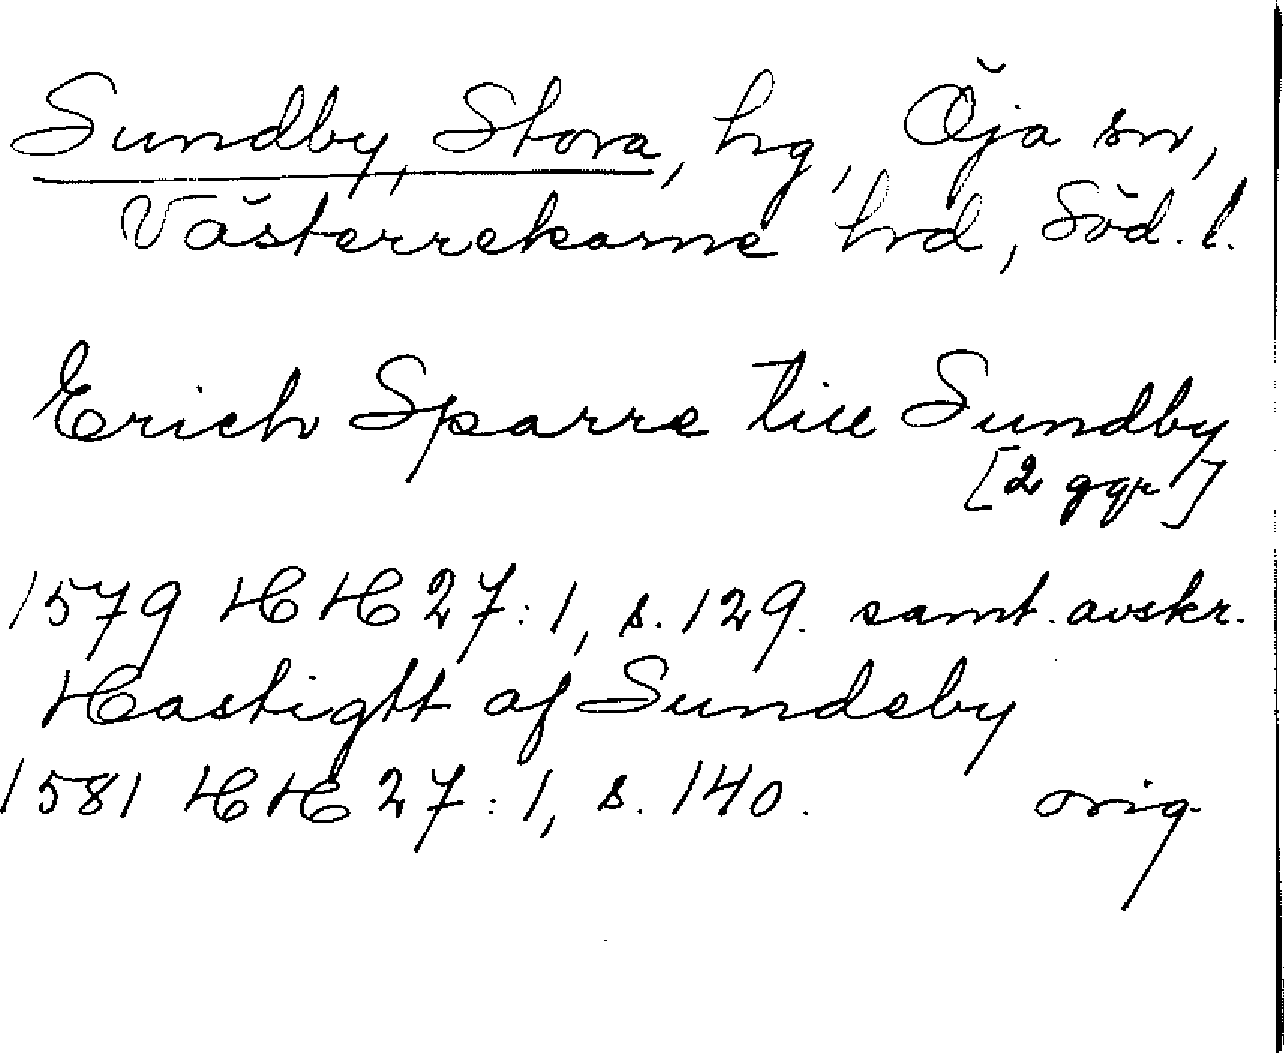 Sundby, Stora, hg, Öja sn,
Västerrekarne hrd, Söd. l.
Erich Sparre till Sundby
[2 ggr]
1579 HH 27:1, s. 129. samt. avskr.
Hastigtt af Sundeby
1581 HH 27:1, s. 140. orig